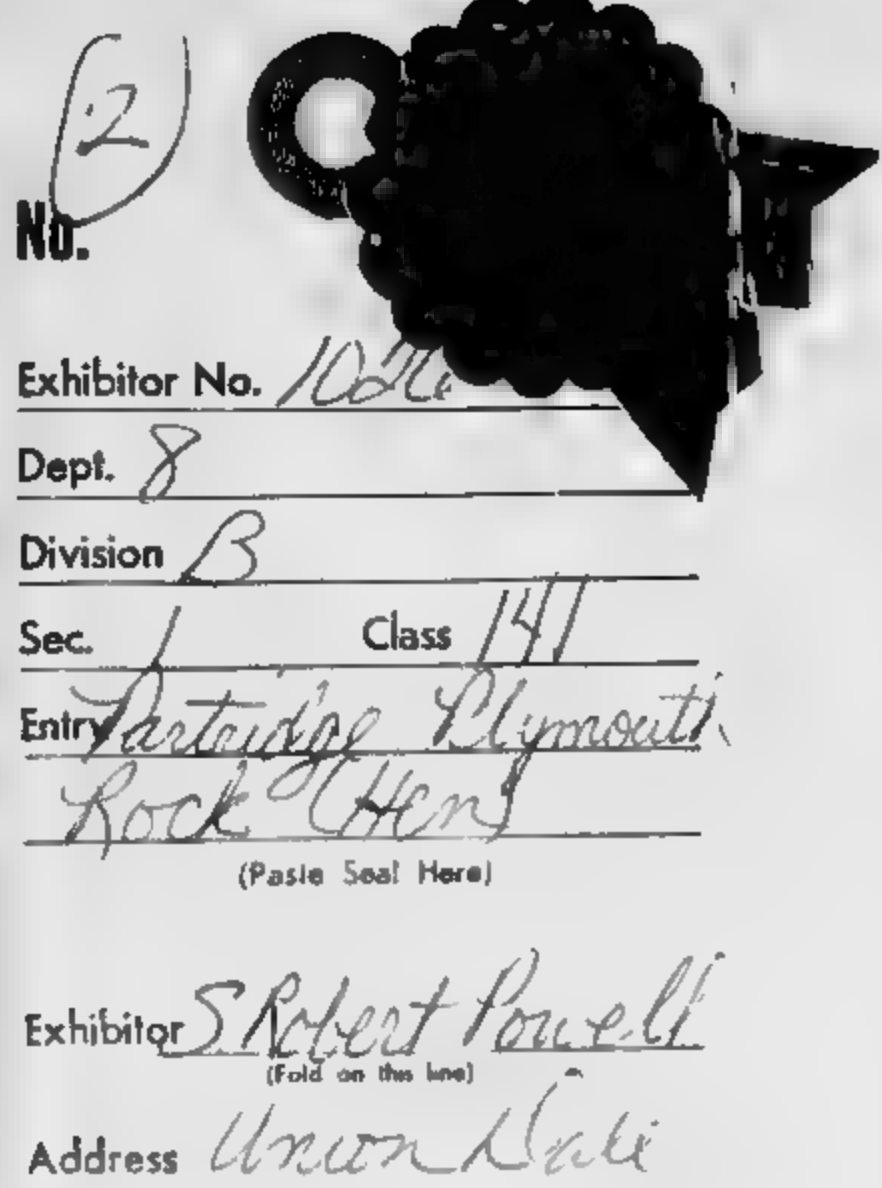 2
No.
Exhibitor No. 1026
Dept. 8
Division B
Sec. 1 Class 141
Entry Partridge Plymouth
Rock (Hen)
(Paste Seal Here)
Exhibitor S Robert Powell
(Fold on this line)
Address Union Dale